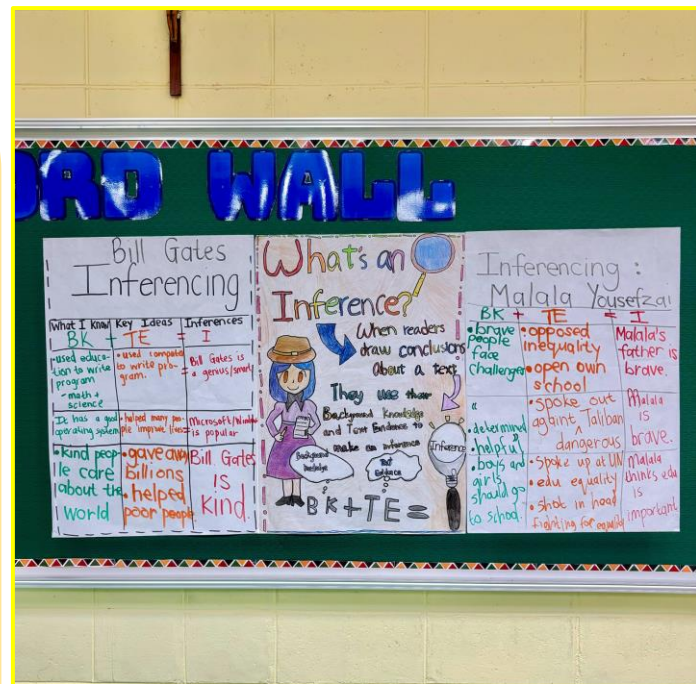 ORD WALL
Bill Gates
Inferencing
What I Know
BK
+
Key Ideas
TE
=
Inferences
I
•used educa-
tion to write
program
-math +
science
•used compute
to write pro-
gram.
=
Bill Gates is
a genius/smart
It has a good
operating system
•helped many peo-
ple improve lives
Microsoft/Window
is popular
•kind peop-
le care
about the
world
•gave away
billions
•helped
poor people
Bill Gates
is
kind.
What's an
Inference?
When readers
draw conclusions
About a text
They use their
Background Knowledge
and Text Evidence to
make an inference
Background
Knowledge
Text
Evidence
Inference
BK+TE=
Inferencing :
Malala Yousefzai
BK + TE = I
•brave
people
face
challenges
•opposed
inequality
•open own
school
Malala's
father is
brave.
"
•determined
•helpful
•spoke out
againt Taliban
^
dangerous
Malala
is
brave.
•boys and
girls
should go
to school.
•spoke up at UN
•edu equality
•shot in head
fighting for equality
Malala
thinks edu
is
important